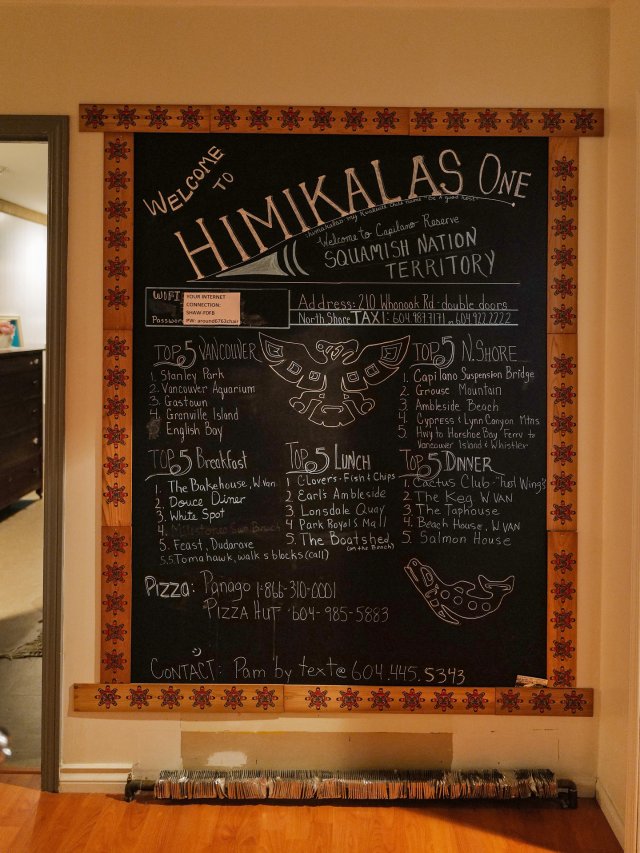 WELCOME
TO
HIMIKALAS ONE
Welcome to Capilano Reserve
SQUAMISH NATION
TERRITORY
WIFI
Password
YOUR INTERNET
CONNECTION:
SHAW-FDFB
PW: around6763chair
Address: 210 Whonoak Rd. double doors
North Shore TAXI: 604.987.7171 or 604.922.2222
TOP 5 VANCOUVER
1. Stanley Park
2. Vancouver Aquarium
3. Gastown
4. Granville Island
English Bay
TOP 5 N. SHORE
1. Capilano Suspension Bridge
2. Grouse Mountain
3. Ambleside Beach
4. Cypress & Lynn Canyon Mtns
5. Hwy to Horshoe Bay Ferry to
Vancouver Island & Whistler
TOP 5 Breakfast
1. The Bakehouse, W.Van
2. Douce Diner
3. White Spot
4.
5. Feast, Dudarave
5.5 Tomahawk, walk 5 blocks (call)
TOP 5 LUNCH
1 C-Lovers-Fish & Chips
2. Earl's Ambleside
3 Lonsdale Quay
4 Park Royal S Mall
5. The Boatshed
(on the Beach)
TOP 5 DINNER
1. Cactus Club
2. The Keg W. VAN
3. The Taphouse
4. Beach House, W. VAN
5. Salmon House
Pizza: Panago 1-866-310-0001
Pizza Hut 604-985-5883
CONTACT: Pam by text@ 604.445.5343